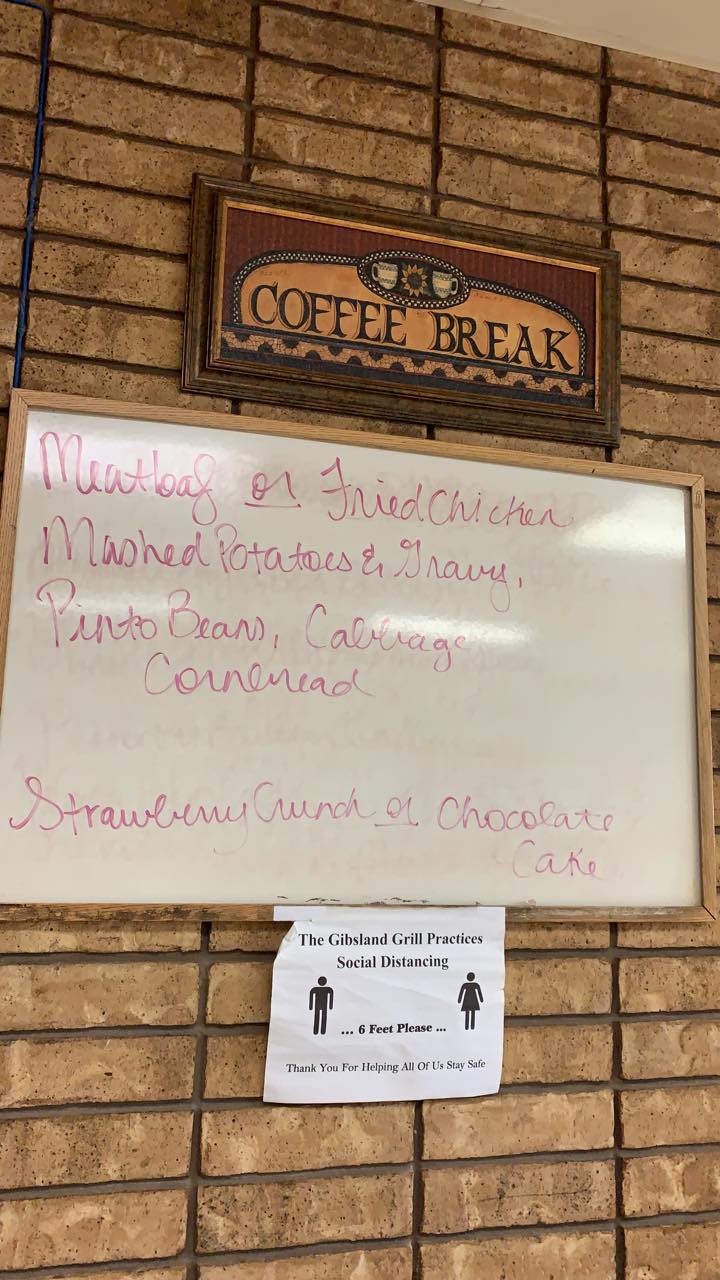 COFFEE BREAK
Meatloaf or Fried Chicken
Mashed Potatoes & Gravy,
Pinto Beans, Cabbage
Cornbread
Strawberry Crunch or Chocolate
Cake
The Gibsland Grill Practices
Social Distancing
... 6 Feet Please ...
Thank You For Helping All Of Us Stay Safe